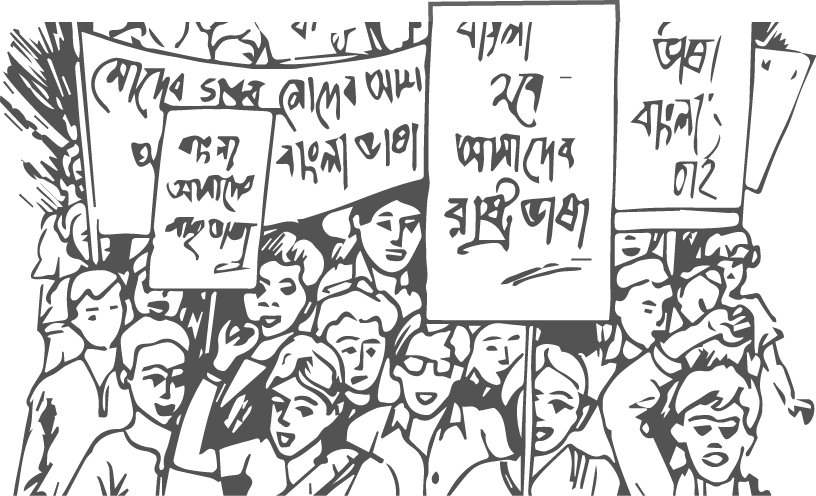 মোদের গরব মোদের আশা
আ
বাংলা ভাষা
বাংলা
আমাদের
মাতৃ ভাষা
বাংলা
হবে
আমাদের
রাষ্ট্র ভাষা
ভাষা
বাংলা
চাই